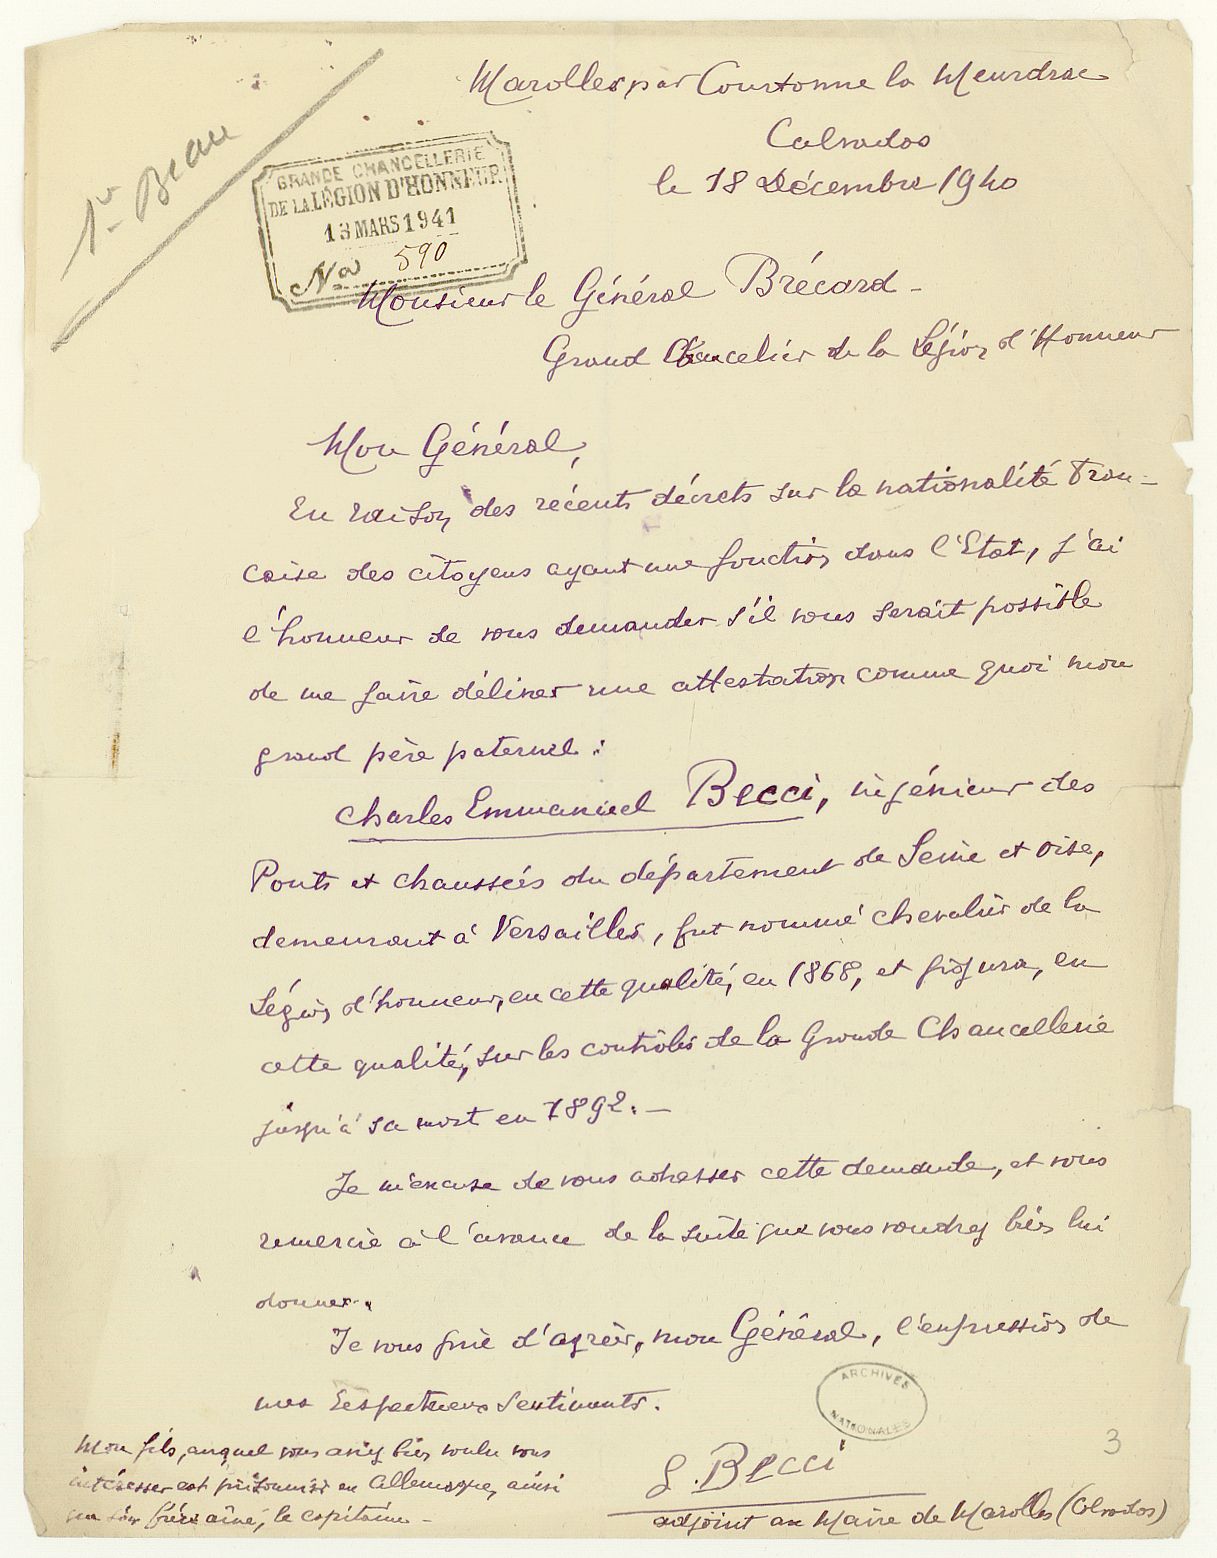 Marolles par Courtonne la Meurdrac
Calvados
le 18 Décembre 1940
1er Beau
GRANDE CHANCELLERIE
DE LA LÉGION D'HONNEUR
13 MARS 1941
No 590
Monsieur le Général Brécard -
Grand Chancelier de la Légion d'Honneur
Mon Général,
En raison des récents décrets sur la nationalité Fran-
caise des citoyens ayant une fonction dans l'Etat, j'ai
l'honneur de vous demander s'il vous serait possible
de me faire délivrer une attestation comme quoi mon
grand père paternel :
Charles Emmanuel Becci, ingénieur des
Ponts et chaussées du département de Seine et Oise,
demeurant à Versailles, fut nommé chevalier de la
Légion d'honneur, en cette qualité, en 1868, et figura, en
cette qualité, sur les contrôles de la Grande Chancellerie
jusqu'à sa mort en 1892. -
Je m'excuse de vous adresser cette demande, et vous
remercie à l'avance de la suite que vous voudrez bien lui
donner.
Je vous prie d'agréer, mon Général, l'expression de
mes respectueux sentiments.
ARCHIVES
NATIONALES
3
Mon fils, auquel vous aviez bien voulu vous
intéresser est prisonnier en Allemagne, ainsi
que son frère aîné, le capitaine -
Becci
adjoint au Maire de Marolles (Calvados)